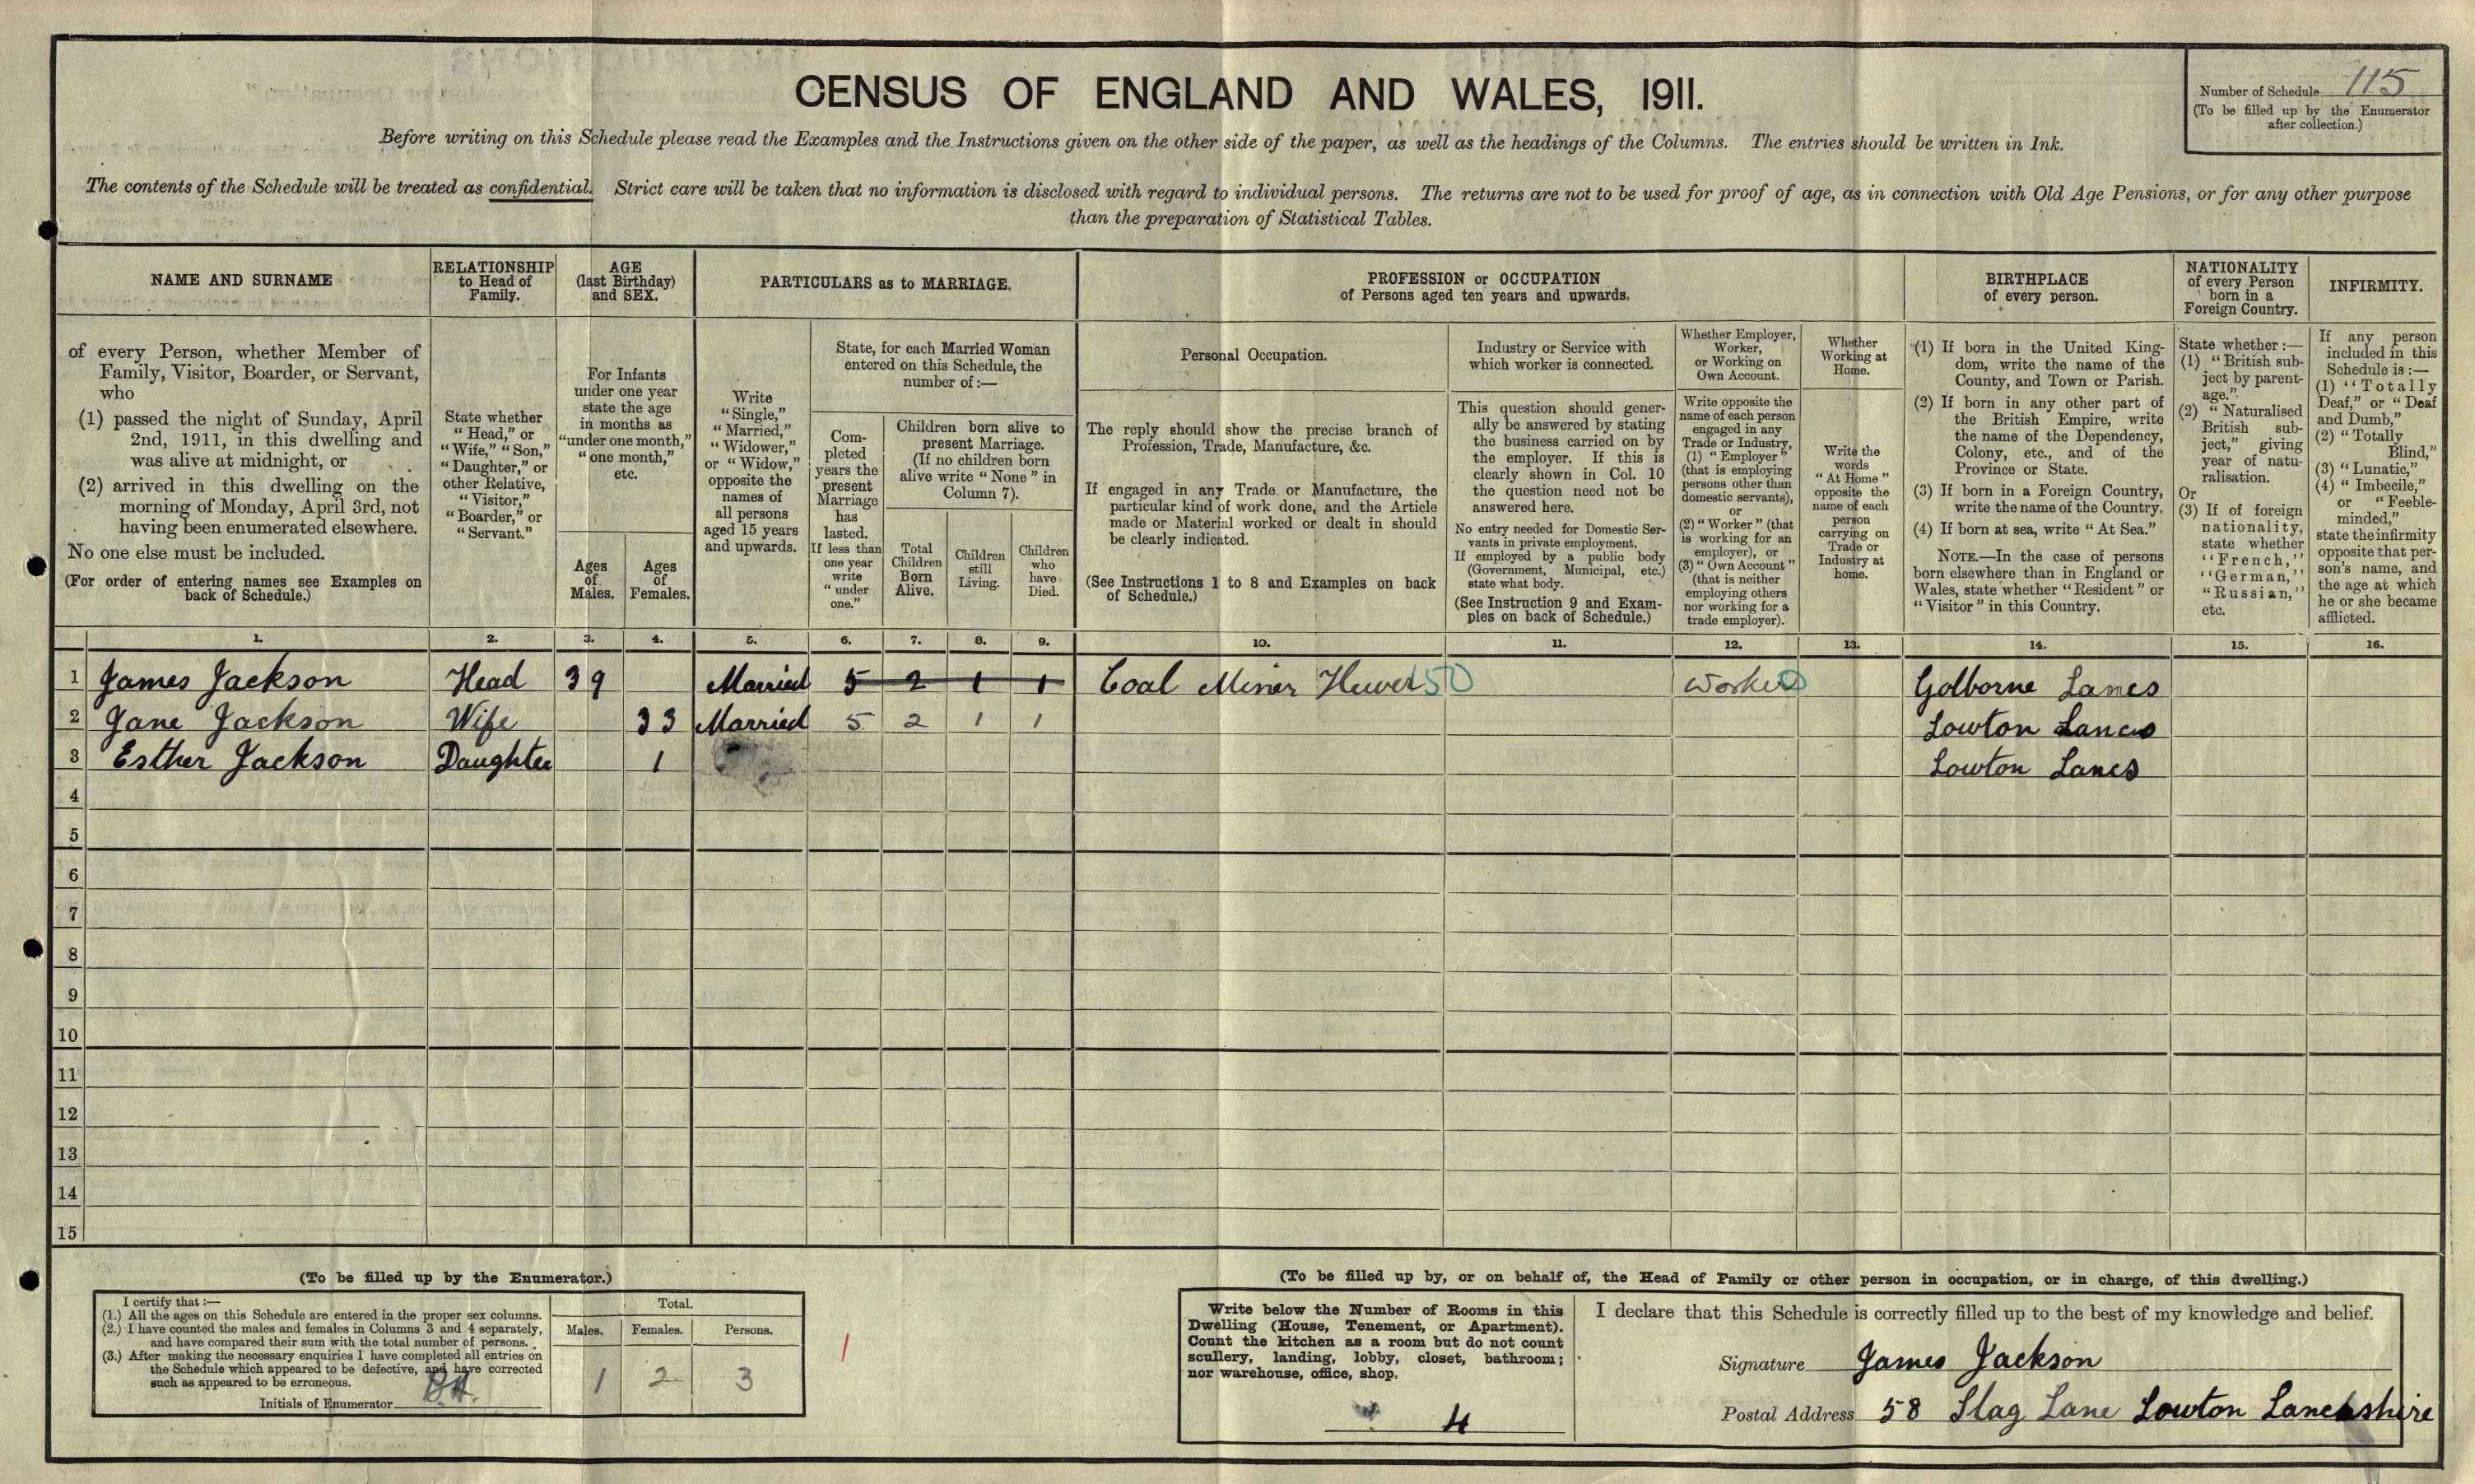 CENSUS OF ENGLAND AND WALES, 1911.
Number of Schedule 115
(To be filled up by the Enumerator
after collection.)
Before writing on this Schedule please read the Examples and the Instructions given on the other side of the paper, as well as the headings of the Columns. The entries should be written in Ink.
The contents of the Schedule will be treated as confidential. Strict care will be taken that no information is disclosed with regard to individual persons. The returns are not to be used for proof of age, as in connection with Old Age Pensions, or for any other purpose
than the preparation of Statistical Tables.
NAME AND SURNAME
of every Person, whether Member of
Family, Visitor, Boarder, or Servant,
who
(1) passed the night of Sunday, April
2nd, 1911, in this dwelling and
was alive at midnight, or
(2) arrived in this dwelling on the
morning of Monday, April 3rd, not
having been enumerated elsewhere.
No one else must be included.
(For order of entering names see Examples on
back of Schedule.)
RELATIONSHIP
to Head of
Family.
State whether
"Head," or
"Wife," "Son,"
"Daughter," or
other Relative,
"Visitor,"
"Boarder," or
"Servant."
AGE
(last Birthday)
and SEX.
For Infants
under one year
state the age
in months as
"under one month,"
"one month,"
etc.
Ages
of
Males.
Ages
of
Females.
PARTICULARS as to MARRIAGE.
Write
"Single,"
"Married,"
"Widower,"
or "Widow,"
opposite the
names of
all persons
aged 15 years
and upwards.
State, for each Married Woman
entered on this Schedule, the
number of :—
Com-
pleted
years the
present
Marriage
has
lasted.
If less than
one year
write
"under
one."
Children born alive to
present Marriage.
(If no children born
alive write "None" in
Column 7).
Total
Children
Born
Alive.
Children
still
Living.
Children
who
have
Died.
PROFESSION or OCCUPATION
of Persons aged ten years and upwards.
Personal Occupation.
The reply should show the precise branch of
Profession, Trade, Manufacture, &c.
If engaged in any Trade or Manufacture, the
particular kind of work done, and the Article
made or Material worked or dealt in should
be clearly indicated.
(See Instructions 1 to 8 and Examples on back
of Schedule.)
Industry or Service with
which worker is connected.
This question should gener-
ally be answered by stating
the business carried on by
the employer. If this is
clearly shown in Col. 10
the question need not be
answered here.
No entry needed for Domestic Ser-
vants in private employment.
If employed by a public body
(Government, Municipal, etc.)
state what body.
(See Instruction 9 and Exam-
ples on back of Schedule.)
Whether Employer,
Worker,
or Working on
Own Account.
Write opposite the
name of each person
engaged in any
Trade or Industry,
(1) "Employer"
(that is employing
persons other than
domestic servants),
or
(2) "Worker" (that
is working for an
employer), or
(3) "Own Account"
(that is neither
employing others
nor working for a
trade employer).
Whether
Working at
Home.
Write the
words
"At Home"
opposite the
name of each
person
carrying on
Trade or
Industry at
home.
BIRTHPLACE
of every person.
(1) If born in the United King-
dom, write the name of the
County, and Town or Parish.
(2) If born in any other part of
the British Empire, write
the name of the Dependency,
Colony, etc., and of the
Province or State.
(3) If born in a Foreign Country,
write the name of the Country.
(4) If born at sea, write "At Sea."
NOTE.—In the case of persons
born elsewhere than in England or
Wales, state whether "Resident" or
"Visitor" in this Country.
NATIONALITY
of every Person
born in a
Foreign Country.
State whether :—
(1) "British sub-
ject by parent-
age."
(2) "Naturalised
British sub-
ject," giving
year of natu-
ralisation.
Or
(3) If of foreign
nationality,
state whether
"French,"
"German,"
"Russian,"
etc.
INFIRMITY.
If any person
included in this
Schedule is :—
(1) "Totally
Deaf," or "Deaf
and Dumb,"
(2) "Totally
Blind,"
(3) "Lunatic,"
(4) "Imbecile,"
or "Feeble-
minded,"
state the infirmity
opposite that per-
son's name, and
the age at which
he or she became
afflicted.
1. 2. 3. 4. 5. 6. 7. 8. 9. 10. 11. 12. 13. 14. 15. 16.
1 James Jackson Head 39 Married 5 2 1 1 Coal Miner Hewer 50 Worker 0 Golborne Lancs
2 Jane Jackson Wife 33 Married 5 2 1 1 Lowton Lancs
3 Esther Jackson Daughter 1 Lowton Lancs
4
5
6
7
8
9
10
11
12
13
14
15
(To be filled up by the Enumerator.)
I certify that :—
(1.) All the ages on this Schedule are entered in the proper sex columns.
(2.) I have counted the males and females in Columns 3 and 4 separately,
and have compared their sum with the total number of persons.
(3.) After making the necessary enquiries I have completed all entries on
the Schedule which appeared to be defective, and have corrected
such as appeared to be erroneous.
Initials of Enumerator
Total.
Males. Females. Persons.
1 2 3
1
(To be filled up by, or on behalf of, the Head of Family or other person in occupation, or in charge, of this dwelling.)
Write below the Number of Rooms in this
Dwelling (House, Tenement, or Apartment).
Count the kitchen as a room but do not count
scullery, landing, lobby, closet, bathroom;
nor warehouse, office, shop.
4
I declare that this Schedule is correctly filled up to the best of my knowledge and belief.
Signature James Jackson
Postal Address 58 Slag Lane Lowton Lancashire